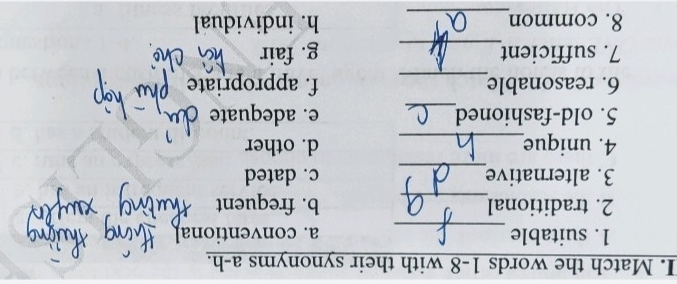 I. Match the words 1-8 with their synonyms a-h.
1. suitable f
2. traditional a
3. alternative d
4. unique h
5. old-fashioned c
6. reasonable
7. sufficient
8. common a
a. conventional thông thường
b. frequent thường xuyên
c. dated
d. other
e. adequate đủ
f. appropriate phù hợp
g. fair
h. individual